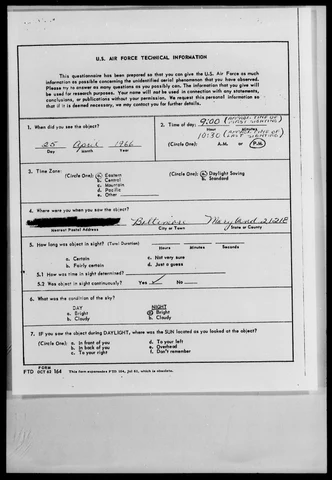 U.S. AIR FORCE TECHNICAL INFORMATION
This questionnaire has been prepared so that you can give the U.S. Air Force as much
information as possible concerning the unidentified aerial phenomenon that you have observed.
Please try to answer as many questions as you possibly can. The information that you give will
be used for research purposes. Your name will not be used in connection with any statements,
conclusions, or publications without your permission. We request this personal information so
that if it is deemed necessary, we may contact you for further details.
1. When did you see the object?
25 April 1966
Day Month Year
2. Time of day: 9:00 (APPROX. TIME OF FIRST SIGHTING)
Hour Minutes
10:30 (APPROX. TIME OF SIGHTING)
(Circle One): A.M. or P.M.
3. Time Zone:
(Circle One): a. Eastern
b. Central
c. Mountain
d. Pacific
e. Other
(Circle One): a. Daylight Saving
b. Standard
4. Where were you when you saw the object?
Baltimore Maryland 21218
Nearest Postal Address City or Town State or County
5. How long was object in sight? (Total Duration)
Hours Minutes Seconds
a. Certain c. Not very sure
b. Fairly certain d. Just a guess
5.1 How was time in sight determined?
5.2 Was object in sight continuously? Yes ✓ No
6. What was the condition of the sky?
DAY NIGHT
a. Bright a. Bright
b. Cloudy b. Cloudy
7. IF you saw the object during DAYLIGHT, where was the SUN located as you looked at the object?
(Circle One): a. In front of you d. To your left
b. In back of you e. Overhead
c. To your right f. Don't remember
FORM
FTD OCT 62 164 This form supersedes FTD 164, Jul 61, which is obsolete.